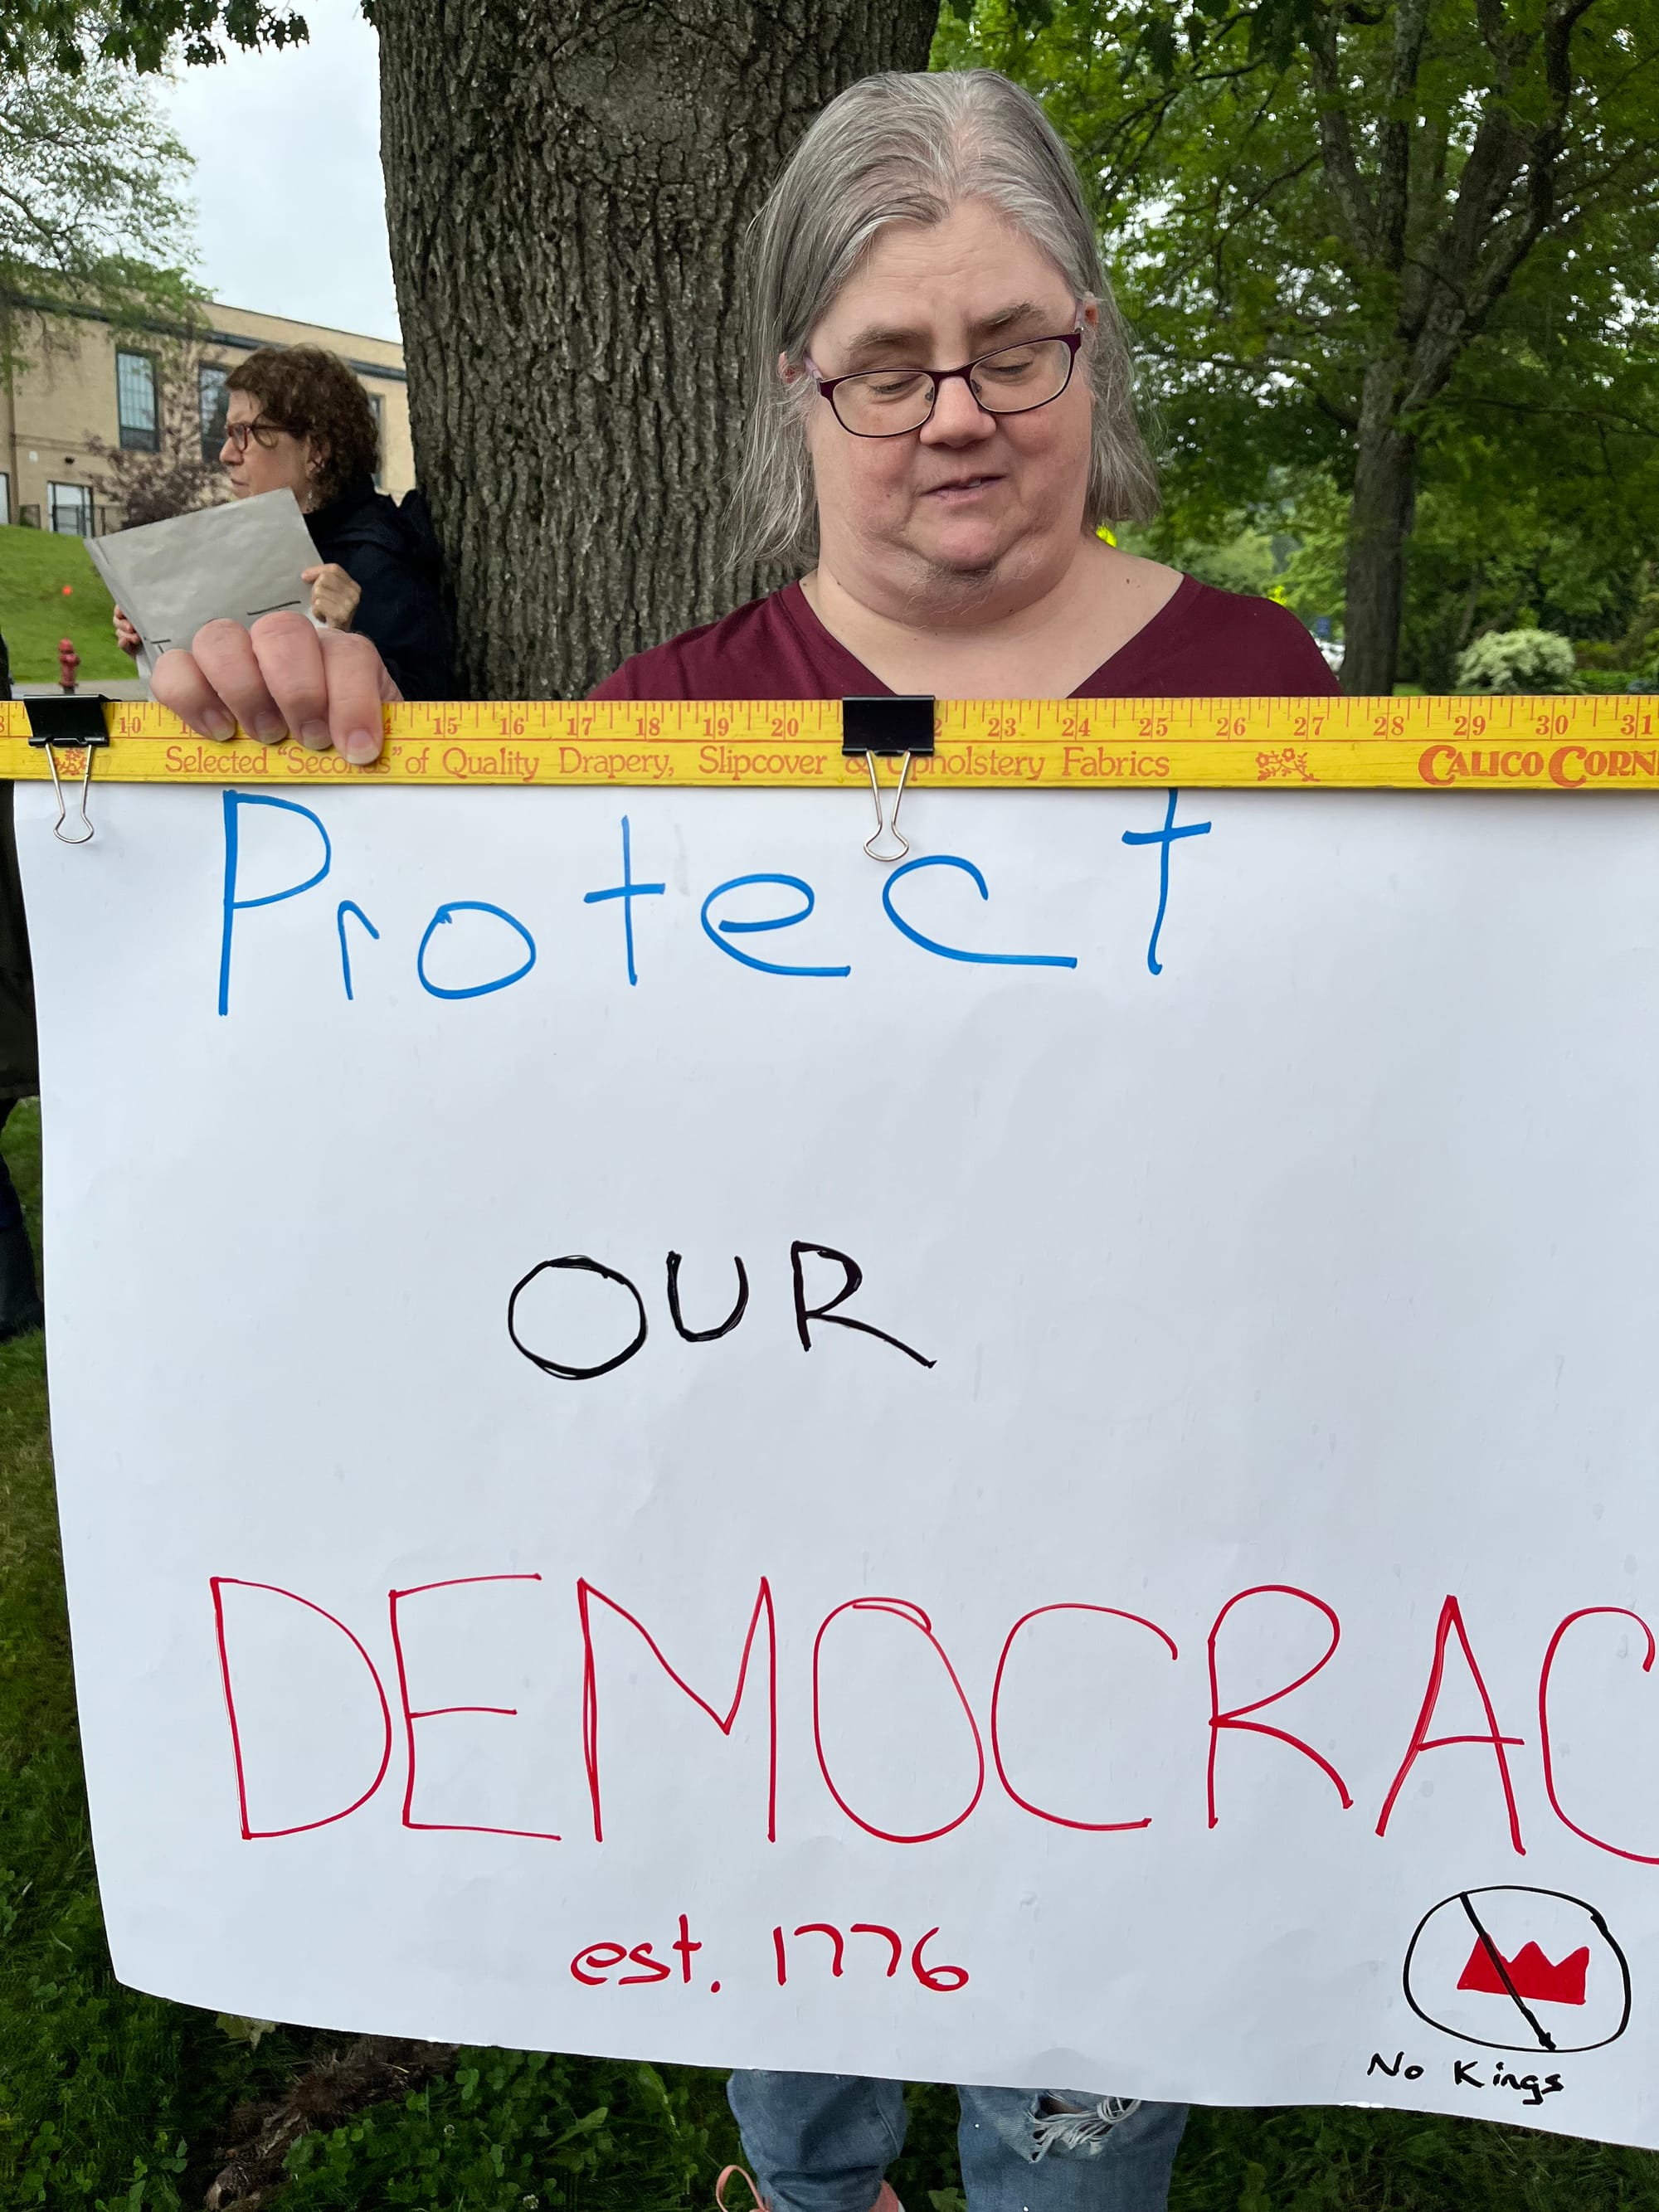 10 15 16 17 18 19 20 23 24 25 26 27 28 29 30 31
Selected "Seconds" of Quality Drapery, Slipcover & Upholstery Fabrics CALICO CORN
Protect
OUR
DEMOCRAC
est. 1776
No Kings